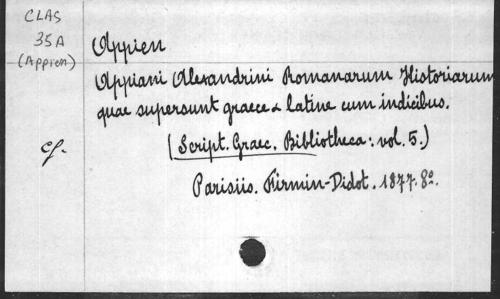 CLAS
35A
(Appien)
Appien
Appiani Alexandrini Romanarum Historiarum
quae supersunt graece & latine cum indicibus.
cf.
(Script. Graec. Bibliotheca: vol. 5.)
Parisiis. Firmin-Didot. 1877. 8º.